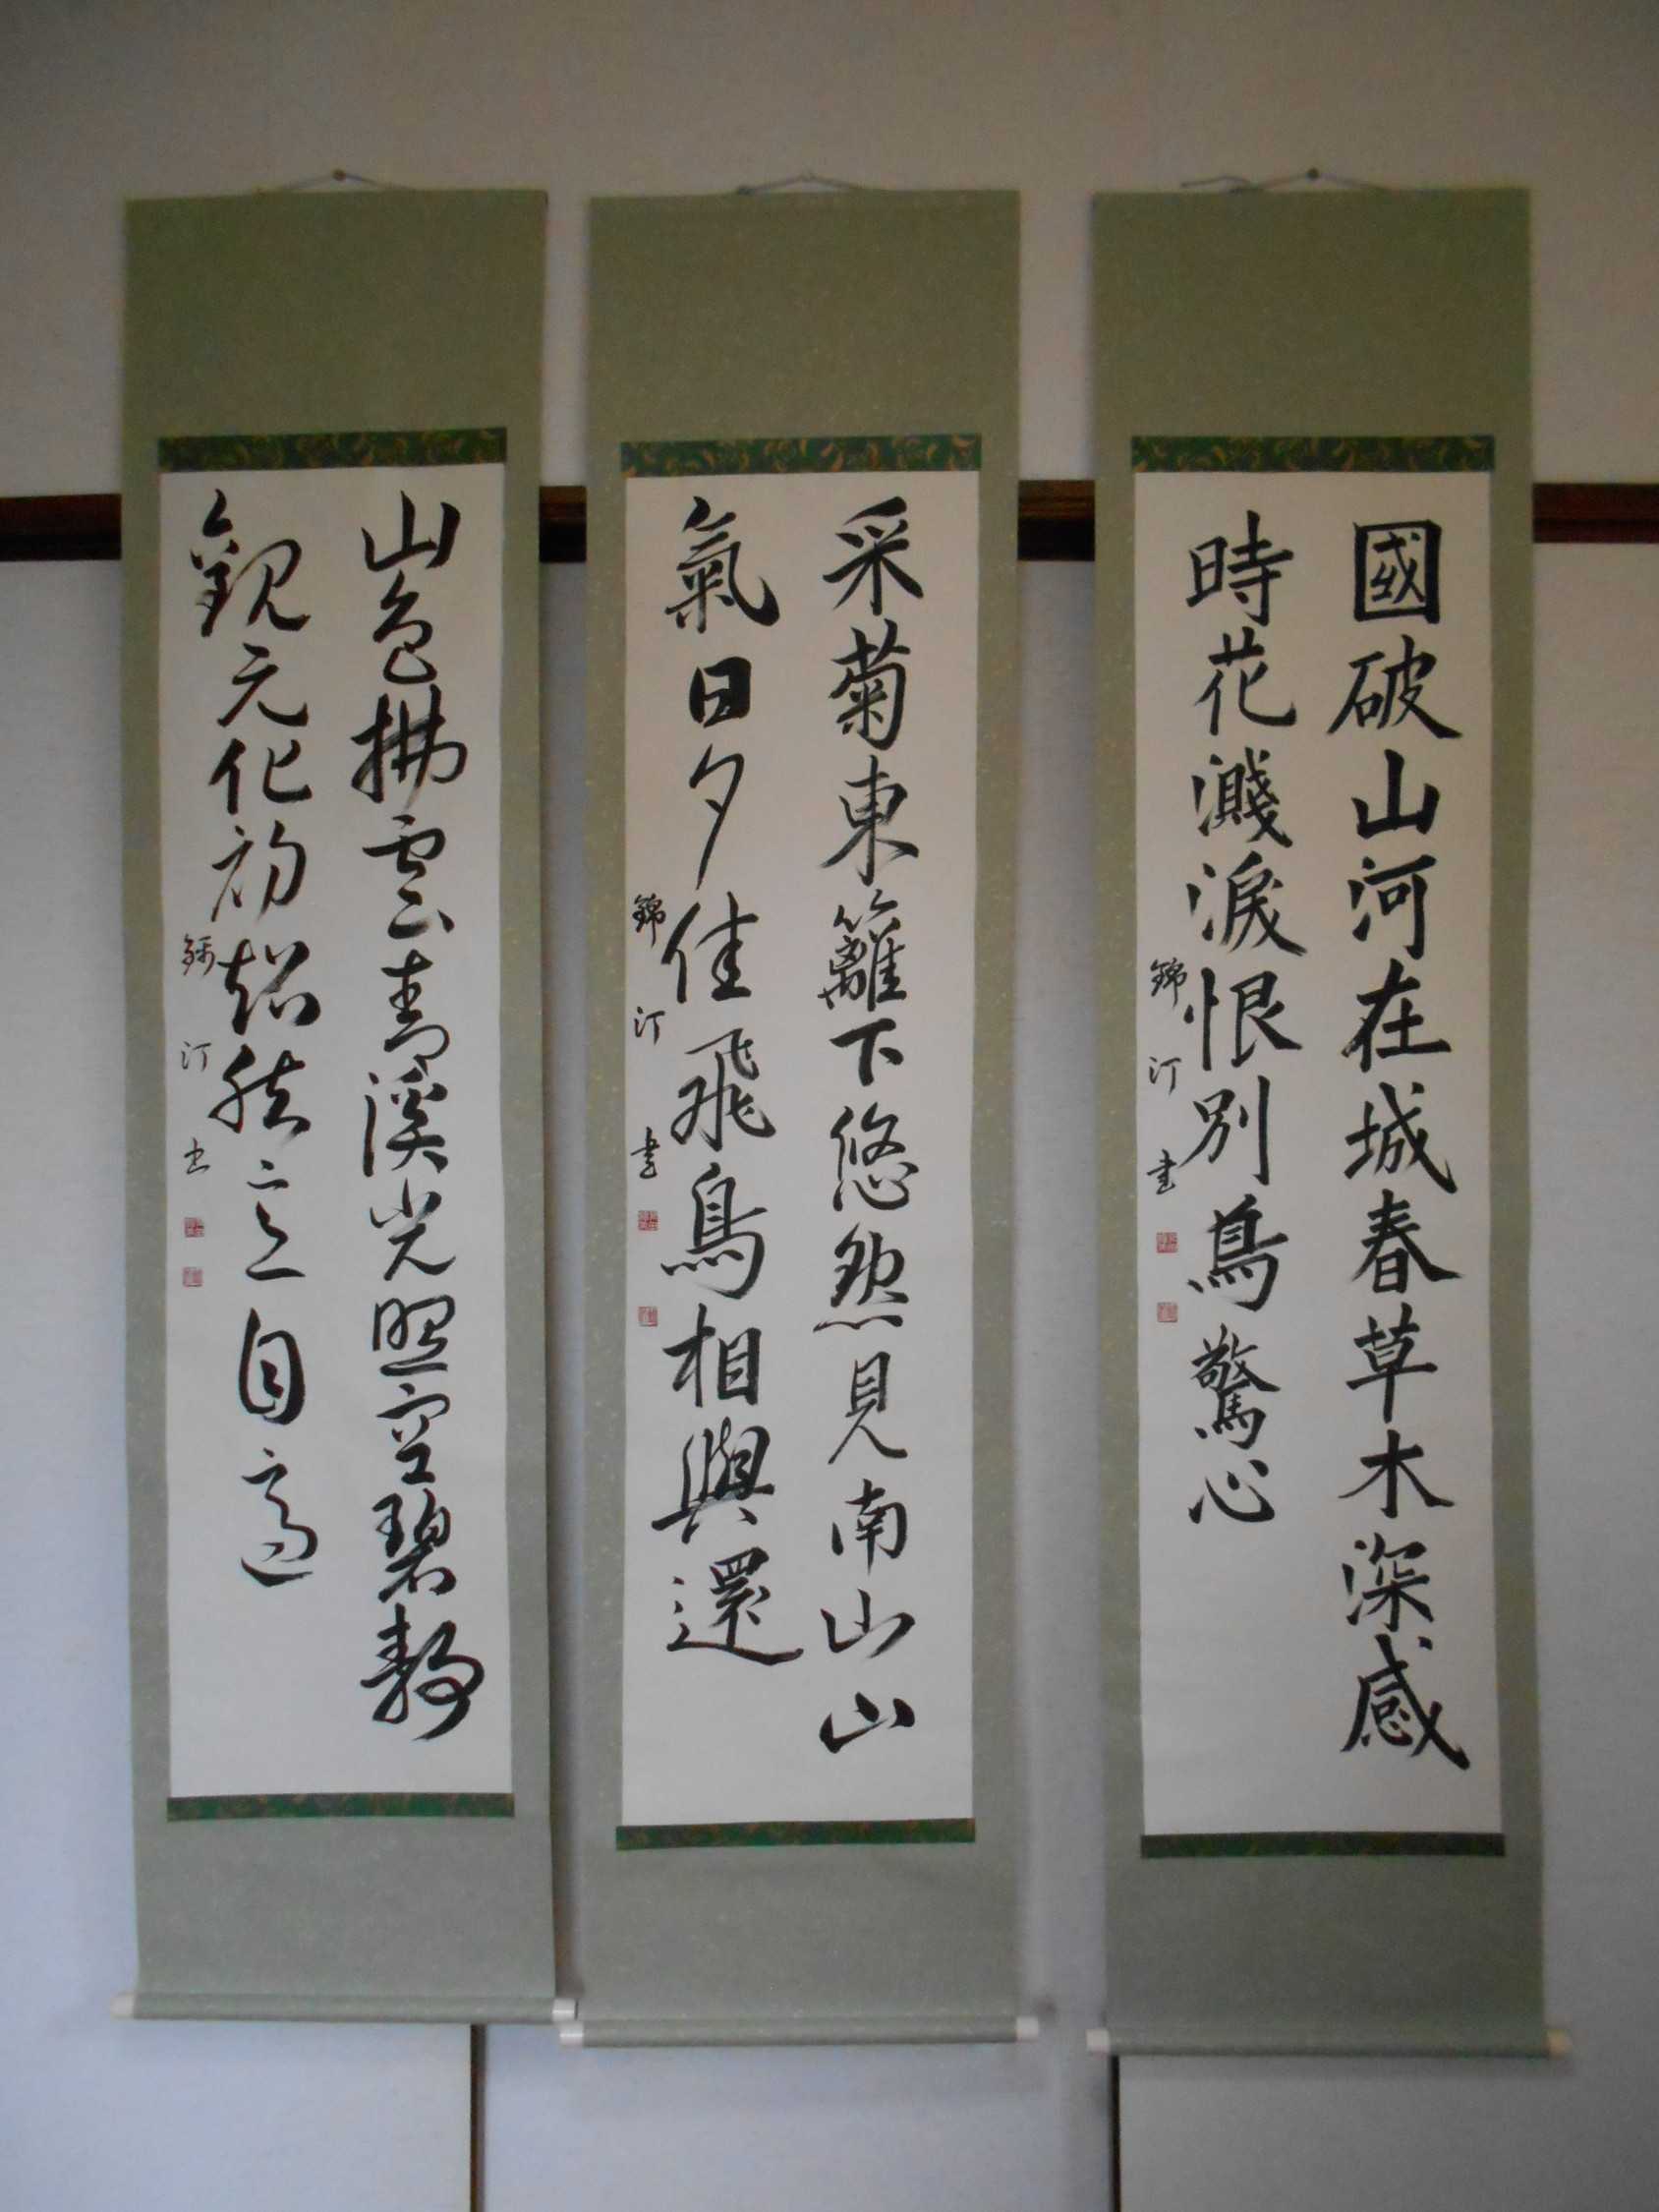 國破山河在城春草木深感
時花濺淚恨別鳥驚心
錦汀書
采菊東籬下悠然見南山山
氣日夕佳飛鳥相與還
錦汀書
山色拂雲青溪光照空碧靜
觀元化初超然意自適
錦汀書